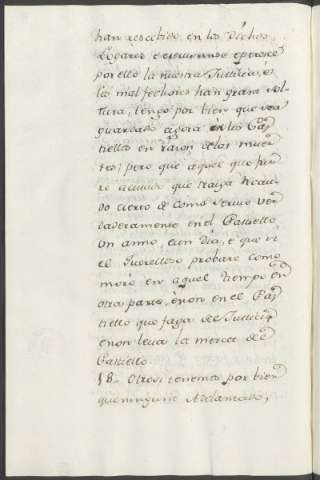 han rescebido en los Dichos
Logares e
por ello la nuestra Justicia, e
los malfechores han gran sol-
tura, tengo por bien que sea
guardado agora en los Cas-
tiellos en raçon de las muer-
tes; pero que aquel que fue-
re acusado que traiga Recau-
do cierto de como servio ver-
daderamente en el Castiello
un anno, e un dia, e que si
el Querelloso probare como
moró en aquel tiempo en
otra parte, e non en el Cas-
tiello que faga de Justicia
e non leva la merced de
Castiello.
18.. Otrosi tenemos por bien
que ninguno Adelantado,